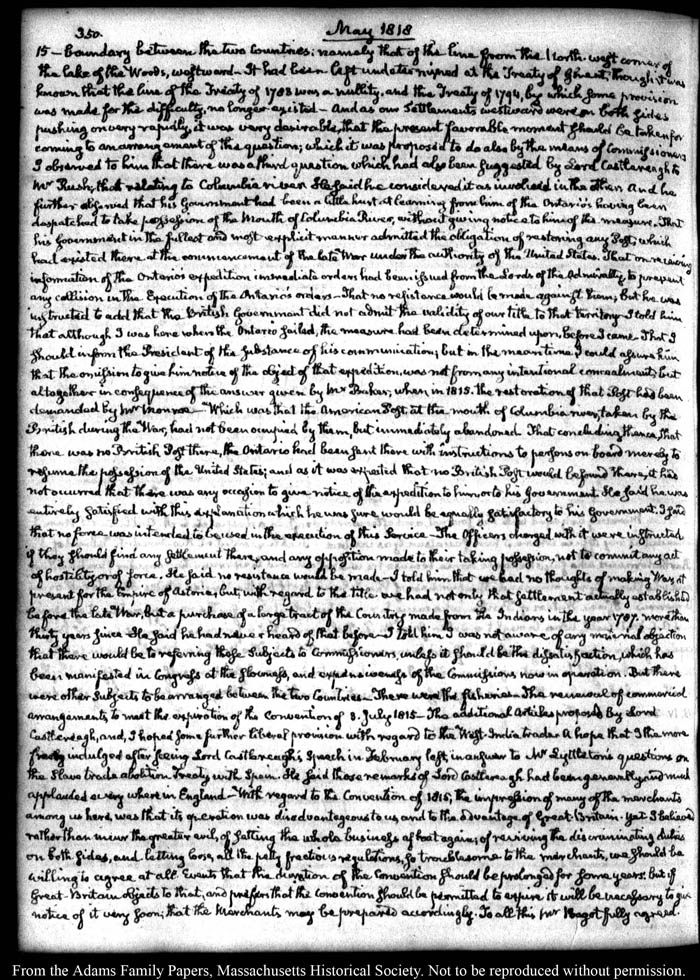 350.
May 1818
15 — Boundary between the two Countries: namely that of the line from the North-west corner of
the lake of the Woods, westward — It had been left undetermined at the Treaty of Ghent, though it was
known that the line of the Treaty of 1783 was a nullity, and the Treaty of 1794, by which some provision
was made for the difficulty, no longer existed — And as our Settlements westward were on both sides
pushing on very rapidly, it was very desirable, that the present favorable moment should be taken for
coming to an arrangement of the question; which it was proposed to do also by the means of Commissioners
I observed to him that there was a third question which had also been suggested by Lord Castlereagh to
Mr Rush; that relating to Columbia river. He said he considered it as involved in the other. And he
further observed that his Government had been a little hurt at learning from him of the Ontario's having been
despatched to take possession of the Mouth of Columbia River, without giving notice to him of the measure. That
his Government in the fullest and most explicit manner admitted the obligation of restoring any Post, which
had existed there at the commencement of the late War under the authority of the United States. That on receiving
information of the Ontario's expedition immediate orders had been issued from the Lords of the Admiralty, to prevent
any collision in the Execution of the Ontario's orders — That no resistance would be made against them; but he was
instructed to add that the British Government did not admit the validity of our title to that territory — I told him
that although I was here when the Ontario sailed, the measure had been determined upon, before I came — That I
should inform the President of the substance of his communication; but in the mean time I could assure him
that the omission to give him notice of the object of that expedition, was not from any intentional concealment; but
altogether in consequence of the answer given by Mr Baker, when in 1815, the restoration of that Post had been
demanded by Mr Monroe — Which was that the American Post at the mouth of Columbia river, taken by the
British during the War, had not been occupied by them, but immediately abandoned. That concluding thence, that
there was no British Post there, the Ontario had been sent there with instructions to persons on board merely to
resume the possession of the United States; and as it was expected that no British Post would be found there, it had
not occurred that there was any occasion to give notice of the expedition to him, or to his Government. He said he was
entirely satisfied with this explanation which he was sure would be equally satisfactory to his Government. I said
that no force was intended to be used in the execution of this Service — The Officers charged with it were instructed
if they should find any Settlement there, and any opposition made to their taking possession, not to commit any act
of hostility or of force. He said no resistance would be made — I told him that we had no thoughts of making War, at
present for the Empire of Astoria; but, with regard to the title we had not only that settlement actually established
before the late War, but a purchase of a large tract of the Country made from the Indians in the year 1787. more than
thirty years since. He said he had never heard of that before — I told him I was not aware of any material objection
that there would be to referring those subjects to Commissioners, unless it should be the dissatisfaction, which has
been manifested in Congress at the slowness, and expensiveness of the Commissions now in operation. But there
were other subjects to be arranged between the two Countries — There were the fisheries — The renewal of commercial
arrangements to meet the expiration of the Convention of 3. July 1815 — The additional Articles proposed by Lord
Castlereagh, and, I hoped some further liberal provision with regard to the West-India trade — A hope that I the more
freely indulged after seeing Lord Castlereagh's Speech in February last, in answer to Mr Lyttleton's questions on
the Slave trade abolition Treaty with Spain. He said those remarks of Lord Castlereagh had been generally and much
applauded every where in England — With regard to the Convention of 1815, the impression of many of the merchants
among us here, was that its operation was disadvantageous to us and to the advantage of Great-Britain. Yet I believed
rather than incur the greater evil, of setting the whole business afloat again, of reviving the discriminating duties
on both sides, and letting loose, all the petty fractious regulations, so troublesome to the merchants, we should be
willing to agree at all Events that the duration of the Convention should be prolonged for some years. But if
Great-Britain objects to that, and prefers that the Convention should be permitted to expire it will be necessary to give
notice of it very soon; that the Merchants may be prepared accordingly. To all this Mr Bagot fully agreed.
From the Adams Family Papers, Massachusetts Historical Society. Not to be reproduced without permission.